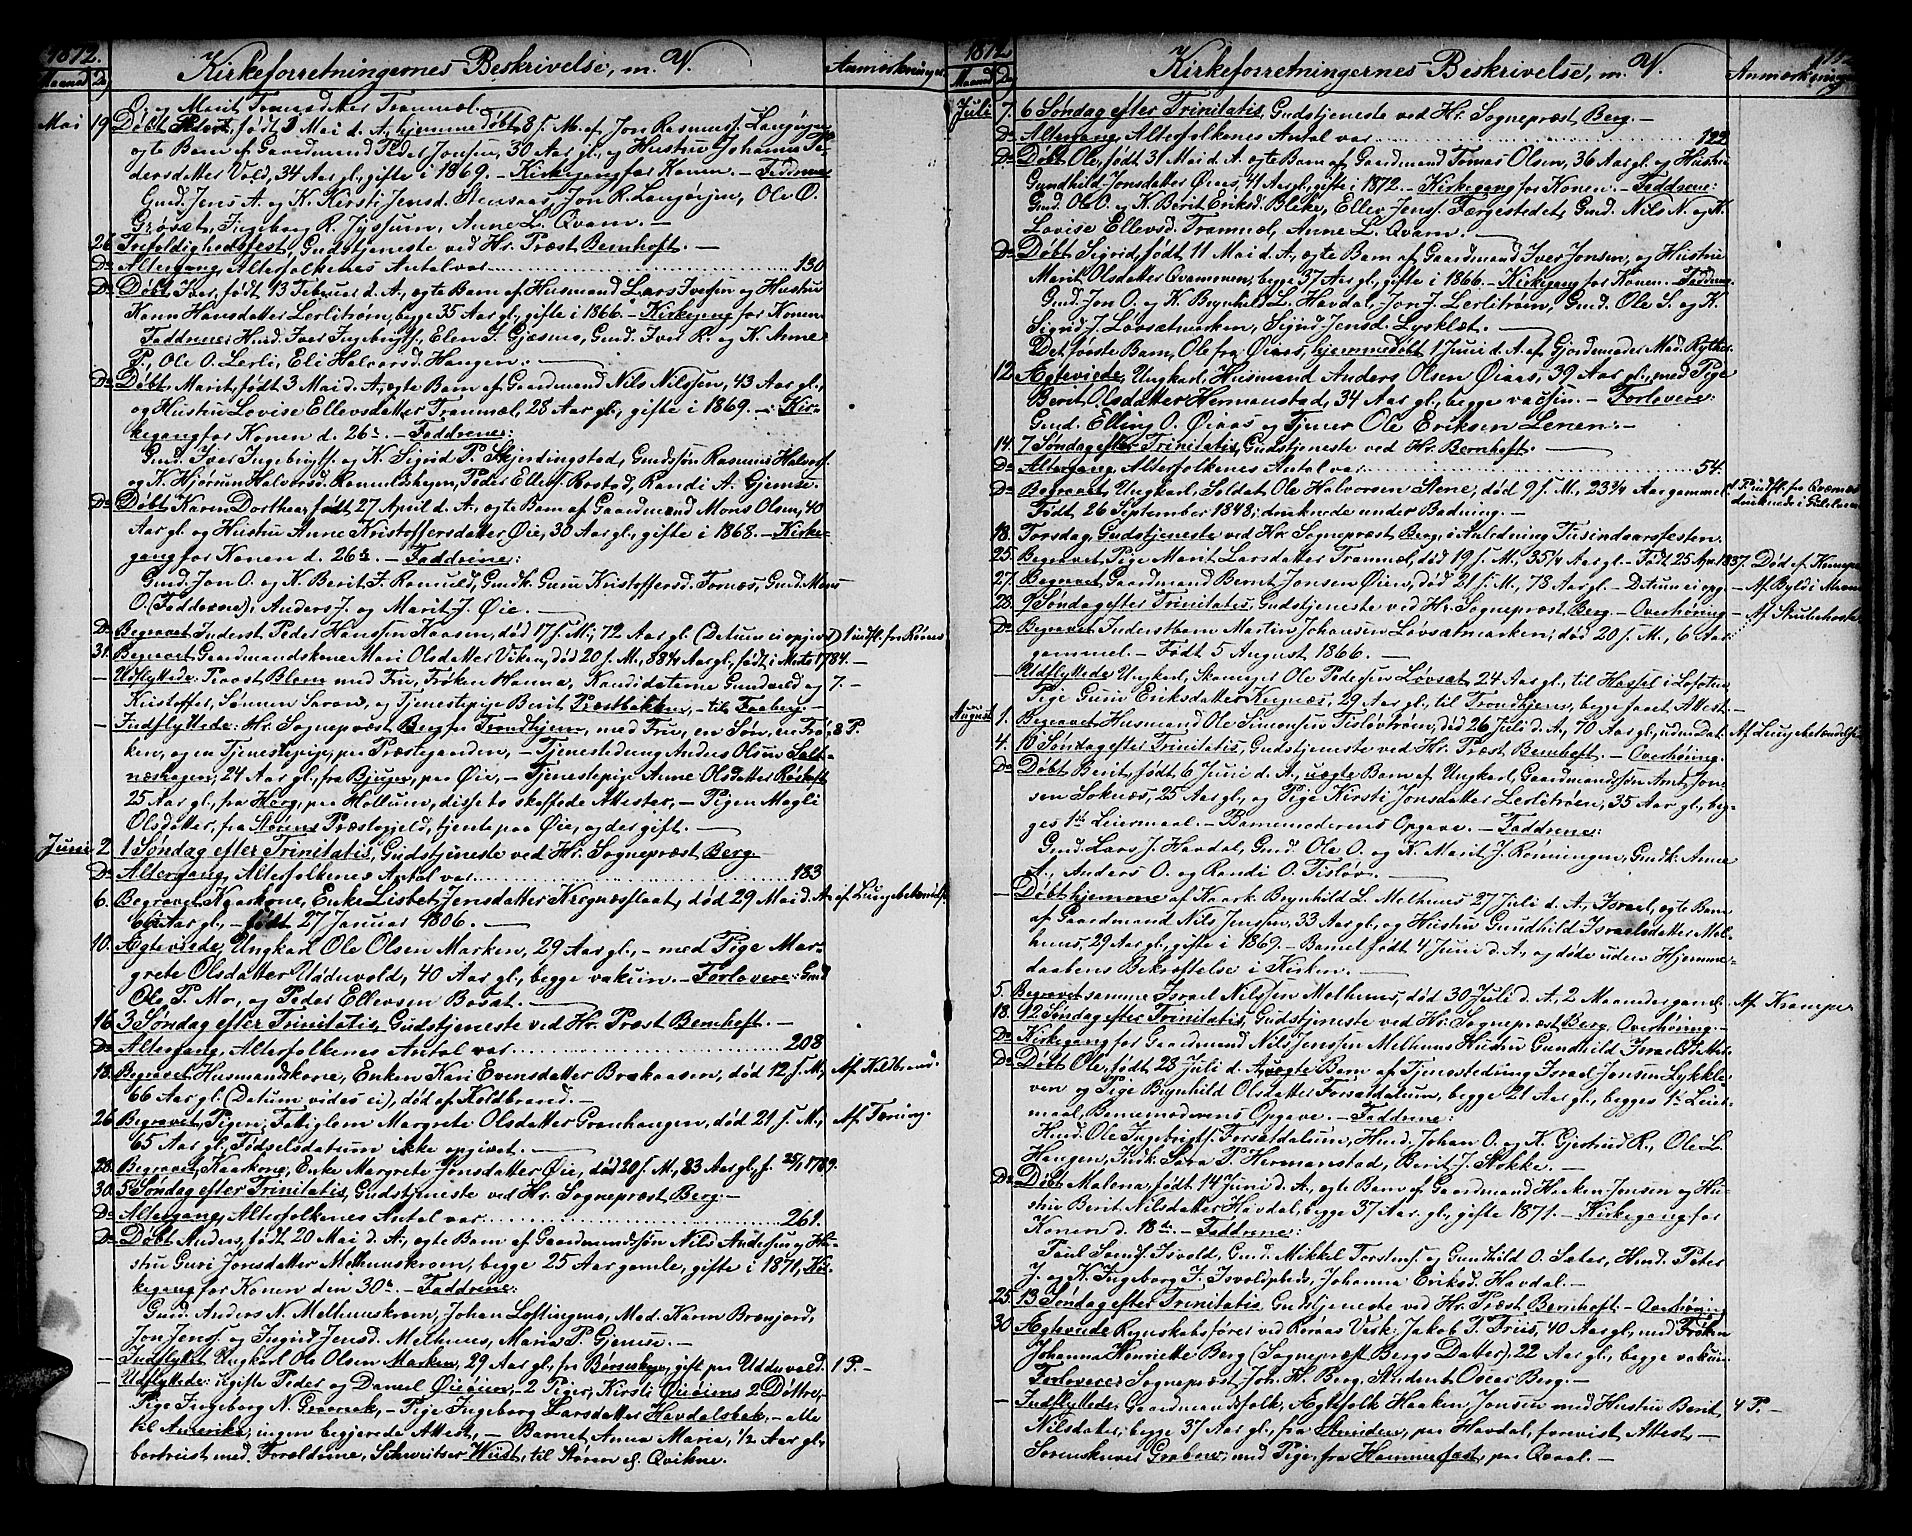 1872.
Kirkeforretningernes Beskrivelse, m. V.
Anmærkninger.
Maaned D.
O. og Marit Tomasdatter Trammæl.
Mai 19. Døbt Peder, født 3 Mai d. A., hjemmedøbt 8 f. M. af Jon Rasmusf. Langørjen,
ægte Barn af Gaardmand Peder Jonsen, 30 Aar gl., og Hustru Johanna Pe-
dersdatter Vold, 34 Aar gl., gifte i 1869. – Kirkegang for Konen. – Faddrene:
Gmd. Jens A. og K. Kirsti Jensd. Stensaas, Jon R. Langørjen, Ole O.
Grøvæt, Ingeborg R. Jyssum, Anne L. Qvam. –
26. Trefoldighedsfest, Gudstjeneste ved Hr. Præst Bernhoft. –
Do Altergang, Alterfolkenes Antal var 130
Do Døbt Iver, født 13 Februar d. A., ægte Barn af Husmand Lars Iversen og Hustru
Karen Hansdatter Lerlitrøen, begge 35 Aar gl., gifte i 1866. – Kirkegang for Konen.
Faddrene: Husd. Iver Ingebrigtf., Elen I. Gjæsnes, Gmd. Iver R. og K. Anne
P., Ole O. Lerli, Eli Halvorsd. Haugen. –
Do Døbt Marit, født 3 Mai d. A., ægte Barn af Gaardmand Nils Nilssen, 43 Aar gl.,
og Hustru Lovise Ellevsdatter Trammæl, 28 Aar gl., gifte i 1869. – Kir-
kegang for Konen d. 26de. – Faddrene:
Gmd. Iver Ingebrigtf. og K. Sigrid P. Skjerdingstad, Gmdsøn Rasmus Halvorf.
og K. Hjørun Halvorsd. Ramulshejm, Peder Ellef. Rostad, Randi A. Gjemse.
Do Døbt Karen Dorthea, født 27 April d. A., ægte Barn af Gaardmand Mons Olsen, 40
Aar gl. og Hustru Anne Kristoffersdatter Øie, 30 Aar gl., gifte i 1868. – Kirke-
gang for Konen d. 26de. – Faddrene:
Gmd. Jon O. og K. Berit I. Ramuld, Gmdk. Guru Kristoffersd. Fornæs, Gmd. Mons
O. (Fadderne), Anders J. og Marit J. Øie. –
Do Begravet Inderst Peder Hanssen Kaasen, død 17 f. M., 72 Aar gl. (Datum ei opgivet) Indfl. fra Rønes
31. Begravet Gaardmandskone Mari Olsdatter Viken, død 20 f. M., 88¼ Aar gl., født i Marts 1784. –
– Udflyttede: Provst Blom med Frue, Frøken Hanna, Kandidaterne Gudmund og 7. –
Kristoffer, Sønnen Søren, og Tjenestepige Berit Præstbakken, – til Faaberg. –
– Indflyttede: Hr. Sognepræst Berg fra Trondhjem, med Frue, en Søn, en Frø- 8 P.
ken, og en Tjenestepige, paa Præstegaarden, – Tjenestedreng Anders Olsen Salt-
næshagen, 24 Aar gl., fra Bjugn, paa Øie, – Tjenestepige Anne Olsdatter Røskaft
25 Aar gl., fra Horg, paa Hollum, disse to skaffede Attester, – Pigen Magli
Olsdatter, fra Størens Præstegjeld, tjente paa Øie, og der gift. –
Juni 2 1 Søndag efter Trinitatis, Gudstjeneste ved Hr. Sognepræst Berg.
Do Altergang, Alterfolkenes Antal var 183
6. Begravet Kaarkone, Enke Lisbet Jensdatter Kregnæsflaat, død 29 Mai d. A., af Lungebetændelse.
66 Aar gl., – født 27 Januar 1806. –
10. Ægteviede, Ungkarl Ole Olsen Marken, 29 Aar gl., – med Pige Mar-
grete Olsdatter Udduvold, 40 Aar gl., begge vaksin. – Forlovere: Gmd
Ole P. Mo, og Peder Ellevsen Bosat. –
16 3 Søndag efter Trinitatis, Gudstjeneste ved Hr. Præst Bernhoft. –
Do Altergang, Alterfolkenes Antal var 208
18. Begravet Husmandskone, Enken Kari Evensdatter Brekaasen, død 12 f. M., Af Koldbrand.
66 Aar gl. (Datum vides ei), død af Koldbrand. –
26. Begravet, Pigen, Fatiglem Margrete Olsdatter Granhaugen, død 21 f. M., Af Tæring.
65 Aar gl., Fødselsdatum ikke opgivet. –
28. Begravet, Kaarkone, Enke Margrete Jonsdatter Øie, død 20 f. M., 83 Aar gl., f. 25/1 1789.
30. 5 Søndag efter Trinitatis, Gudstjeneste ved Hr. Sognepræst Berg. –
Do Altergang, Alterfolkenes Antal var 261.
Do Døbt Anders, født 20 Mai d. A., ægte Barn af Gaardmandssøn Nils Andersen og Hu-
stru Guri Jonsdatter Melhuuskrom, begge 25 Aar gamle, gifte i 1871, Kir-
kegang for Konen den 30te. – Faddrene:
Gmd. Anders N. Melhuuskrom, Johan Løftingmo, Mad. Karen Brenjord,
Jon Jensf. og Ingrid Jensd. Melhuus, Maria P. Gjemse. –
– Indflyttet Ungkarl Ole Olsen Marken, 29 Aar gl., fra Børsskogn, gift paa Udduvold. 1 P –
– Udflyttede: ugifte Peder og Daniel Øieøien, 2 Piger, Kirsti Øieøiens 2 Døttre,
Pige Ingeborg N. Gravrak, – Pige Ingeborg Larsdatter Havdalsbak, – alle
til Amerika, ingen begjærede Attest, – Barnet Anna Maria, ½ Aar gl.,
bortreist med Forældrene, Schweitser Wüdt, til Støren el. Qvikne.
1872
Kirkeforretningernes Beskrivelse, m. V.
Anmærkninger
Maaned D
Juli 7. 6 Søndag efter Trinitatis, Gudstjeneste ved Hr. Sognepræst Berg. –
Do Altergang, Alterfolkenes Antal var 122
Do Døbt Ole, født 31 Mai d. A., ægte Barn af Gaardmand Tomas Olsen, 36 Aar gl. og Hustru
Gundhild Jonsdatter Øiaas, 41 Aar gl., gifte i 1872. – Kirkegang for Konen. – Faddrene:
Gmd. Ole O. og K. Berit Eriksd. Bleke, Ellev Jensf. Færgestedet, Gmd. Nils N. og K.
Lovise Ellevsd. Trammæl, Anne L. Qvam. –
Do Døbt Sigrid, født 11 Mai d. A., ægte Barn af Gaardmand Iver Jonsen, og Hustru
Marit Olsdatter Qvamsveen, begge 37 Aar gl., gifte i 1866. – Kirkegang for Konen. – Faddrene:
Gmd. Jon O. og K. Brynhild L. Havdal, Jon J. Lerlitrøen, Gmd. Ole S. og K.
Sigrid J. Løvsætmarken, Sigrid Jensd. Lysklæt. –
Det første Barn, Ole fra Øiaas, hjemmedøbt 1 Juni d. A. af Gjordemoder Mad. Rytter.
12. Ægteviede, Ungkarl, Husmand Anders Olsen Øiaas, 39 Aar gl., med Pige
Berit Olsdatter Hermanstad, 34 Aar gl., begge vacsin. – Forlovere:
Gmd. Elling O. Øiaas og Tjener Ole Eriksen Lenen. –
14. 7 Søndag efter Trinitatis, Gudstjeneste ved Hr. Bernhoft. –
Do Altergang, Alterfolkenes Antal var 54.
Do Begravet, Ungkarl, Soldat Ole Halvorsen Stene, død 9 f. M., 23¾ Aar gammel.
Født 26 September 1848; druknede under Badning. –
18. Torsdag, Gudstjeneste ved Hr. Sognepræst Berg i Anledning Tusindaarsfesten.
25. Begravet Pige Marit Larsdatter Trammæl, død 19 f. M., 35¼ Aar gl. – Født 25 Apr. 1837. Død af Krampe
27. Begravet Gaardmand Bernt Jonsen Øien, død 21 f. M., 78 Aar gl. – Datum ei opg. – Af Byld i Maven
28. 9 Søndag efter Trinitatis, Gudstjeneste ved Hr. Sognepræst Berg – Overhøring. – Af Strubehoste
Do Begravet Inderstbarn Martin Johansen Løvsætmarken, død 20 f. M., 6 Aar
gammel. – Født 5 August 1866. –
– Udflyttede Ungkarl, Skomager Ole Pedersen Løvsæt, 24 Aar gl., til Hassel i Lofoten,
Pige Guru Eriksdatter Kregnæs, 29 Aar gl., til Trondhjem, begge faaet Attest. –
August 1. Begravet Husmand Ole Simonsen Tisløvtrøen, død 26 Juli d. A., 70 Aar gl., uden Dat. Af Lungebetændelse
4. 10 Søndag efter Trinitatis, Gudstjeneste ved Hr. Præst Bernhoft. – Overhøring.
Do Døbt Berit, født 6 Juni d. A., uægte Barn af Ungkarl, Gaardmandssøn Arnt Jon-
sen Soknæs, 25 Aar gl., og Pige Kirsti Jonsdatter Lerlitrøen, 35 Aar gl., beg-
ges 1ste Leiermaal. – Barnemoderens Opgave. – Faddrene:
Gmd. Lars J. Havdal, Gmd. Ole O. og K. Marit J. Rønningen, Gmdk. Anne
A., Anders O. og Randi O. Tisløv. –
– Døbt hjemme af Kaark. Brynhild L. Melhuus 27 Juli d. A., Israel, ægte Barn
af Gaardmand Nils Jenssen, 33 Aar gl., og Hustru Gundhild Israelsdatter Mel-
huus, 29 Aar gl., gifte i 1869. – Barnet født 4 Juni d. A., og døde uden Hjemme-
daabens Bekræftelse i Kirken. –
5. Begravet samme Israel Nilssen Melhuus, død 30 Juli d. A., 2 Maaneder gamel. Af Krampe
18. 12 Søndag efter Trinitatis, Gudstjeneste ved Hr. Sognepræst Berg, Overhøring. –
Do Kirkegang for Gaardmand Nils Jenssen Melhuus Hustru Gundhild Israelsdatter.
Do Døbt Ole, født 28 Juli d. A., uægte Barn af Tjenestedreng Israel Jonsen Lykkle-
ven og Pige Brynhild Olsdatter Forsætdalum, begge 21 Aar gl., begges 1ste Leier-
maal, Barnemoderens Opgave. – Faddrene:
Husd. Ole Ingebrigtf. Forsætdalum, Husd. Johan O. og K. Gjertrud R., Ole L.
Haugen, Husk. Sara P. Hermanstad, Berit J. Stokke. –
Do Døbt Malena, født 14 Juni d. A., ægte Barn af Gaardmand Haaken Jonsen og Hu-
stru Berit Nilsdatter Havdal, begge 37 Aar gl., gifte 1871. – Kirkegang for
Konen d. 18de. – Faddrene:
Paul Svendf. Isvold, Gmd. Mikkel Torstensf. og Gundhild O. Sater, Husd. Peter
J. og K. Ingeborg I. Isvoldplads, Johanna Eriksd. Havdal. –
25. 13 Søndag efter Trinitatis, Gudstjeneste ved Hr. Præst Bernhoft. – Overhøring
30. Ægteviede Regnskabsfører ved Røraas Verk: Jakob P. Friis, 40 Aar gl., med Frøken
Johanna Henriette Berg (Sognepræst Bergs Datter), 22 Aar gl., begge vaksin.
Forlovere Sognepræst Joh. H. Berg, Student Oscar Berg. –
– Indflyttede, Gaardmandsfolk, Ægtefolk Haaken Jonsen med Hustru Berit 4 P –
Nilsdatter, begge 37 Aar gl., fra Strinden, paa Havdal, forevist Attest –
med Pige, fra Hammerfest, paa Qvaal. –